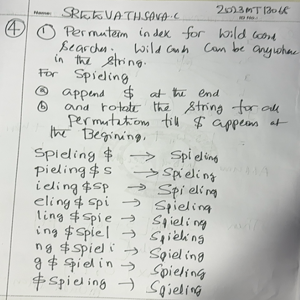 NAME: SRLLOVATHSAVA.C 2023MT13068
④ ① Permuterm index for Wild card
Searches. Wild card can be anywhere
in the String.
For Spieling
ⓐ append $ at the end
ⓑ and rotate the String for all
Permutations till $ appears at
the Begining.
Spieling $ → Spieling
pieling $ s → Spieling
ieling $ sp → Spieling
eling $ spi → Spieling
ling $ spie → Spieling
ing $ spiel → Spieling
ng $ spieli → Spieling
g $ spielin → Spieling
$ Spieling → Spieling